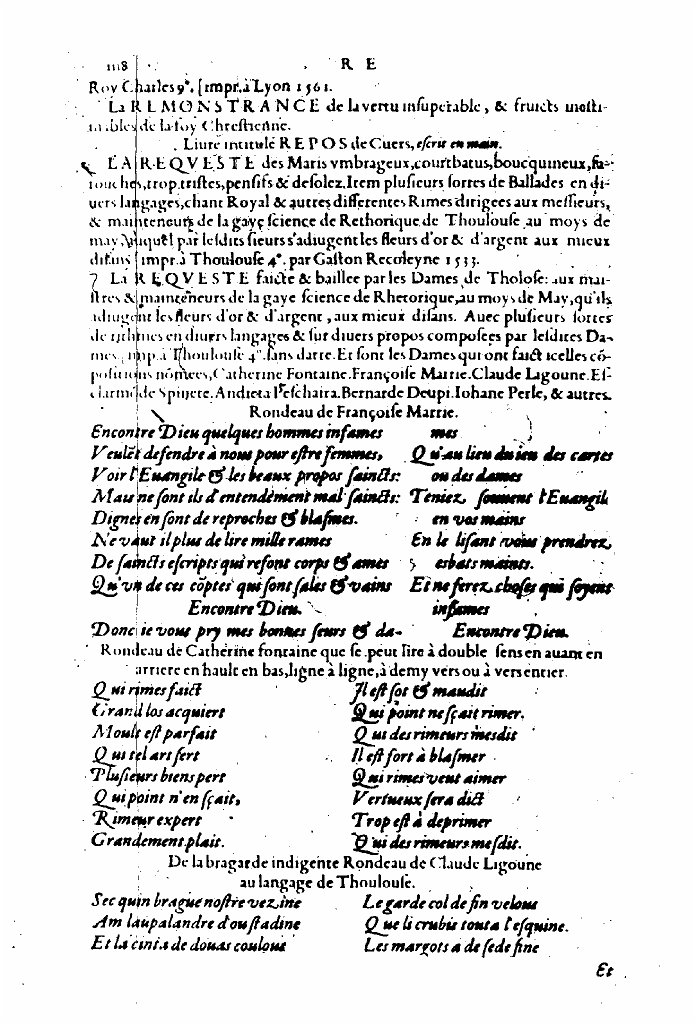 1118 R E
Roy Charles 9ᵉ. [impr. à Lyon 1561.
La REMONSTRANCE de la vertu insuperable, & fruicts inesti-
mables de la foy Chrestienne.
Liure intitulé REPOS de Cuers, escrit en main.
LA REQVESTE des Maris vmbrageux, courtbatus, boucquineux, fa-
rouches, trop tristes, pensifs & desolez. Item plusieurs sortes de Ballades en di-
uers langages, chant Royal & autres differentes Rimes dirigees aux messieurs,
& mainteneurs de la gaye science de Rethorique de Thoulouse au moys de
may. Auquel par lesdits sieurs s'adiugent les fleurs d'or & d'argent aux mieux
disans [impr. à Thoulouse 4°. par Gaston Recoleyne 1533.
La REQVESTE faicte & baillee par les Dames de Tholose: aux mai-
stres & mainteneurs de la gaye science de Rhetorique, au moys de May, qu'ils
adiugent les fleurs d'or & d'argent, aux mieux disans. Auec plusieurs sortes
de rithmes en diuers langages & sur diuers propos composees par lesdites Da-
mes, imp. à Thoulouse 4°. sans datte. Et sont les Dames qui ont faict icelles cō-
positions nōmees, Catherine Fontaine. Françoise Marrie. Claude Ligoune. Es-
clarmōde Spinete. Andieta Peschaira. Bernarde Deupi. Iohane Perle, & autres.
Rondeau de Françoise Marrie.
Encontre Dieu quelques hommes infames
Veulēt defendre à nous pour estre femmes,
Voir l'Euangile & les beaux propos saincts:
Mais ne sont ils d'entendement mal saincts:
Dignes en sont de reproches & blasmes.
Ne vaut il plus de lire mille rames
De saincts escripts qui resont corps & ames
Qu'vn de ces cōptes qui sont sales & vains
Encontre Dieu.
Donc ie vous pry mes bonnes seurs & da-
mes
Qu'au lieu du ieu des cartes
ou des dames
Teniez souuent l'Euangil
en vos mains
En le lisant vous prendrez
esbats maints.
Et ne ferez choses qui soyent
infames
Encontre Dieu.
Rondeau de Catherine fontaine que se peut lire à double sens en auant en
arriere en hault en bas, ligne à ligne, à demy vers ou à vers entier.
Qui rimes faict
Grand los acquiert
Moult est parfait
Qui tel art sert
Plusieurs biens pert
Qui point n'en sçait,
Rimeur expert
Grandement plait.
Il est sot & maudit
Qui point ne sçait rimer.
Qui des rimeurs mesdit
Il est fort à blasmer
Qui rimes veut aimer
Vertueux sera dict
Trop est à deprimer
Qui des rimeurs mesdit.
De la bragarde indigente Rondeau de Claude Ligoune
au langage de Thoulouse.
Sec quin brague nostre vezine
Am laupalandre d'oustadine
Et la cinta de douas coulous
Le garde col de fin velous
Que li crubis touta l'esquine.
Les margots a de sede fine
Et